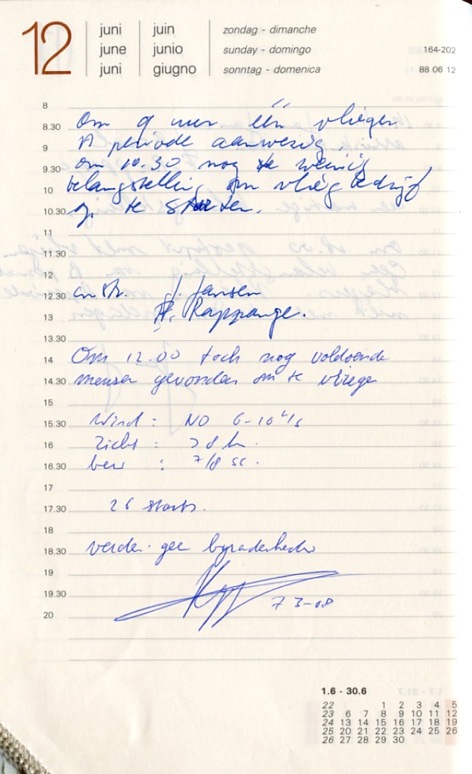 12
juni juin zondag - dimanche
june junio sunday - domingo 164-202
juni giugno sonntag - domenica 88 06 12
8
8.30 Om 9 uur één vlieger
9 A periode aanwezig
9.30 om 10.30 nog te weinig
10 belangstelling om vliegbedrijf
10.30 op te starten.
11
11.30
12
12.30 instr. J. Jansen
13 H. Rappange.
13.30
14 Om 12.00 toch nog voldoende
14.30 mensen gevonden om te vliegen
15
15.30 Wind : NO 6-10
16 Zicht : >8 km.
16.30 bew : 7/8 sc.
17
17.30 26 starts.
18
18.30 verder geen byzonderheden
19
19.30
20
1.6 - 30.6
22 1 2 3 4 5
23 6 7 8 9 10 11 12
24 13 14 15 16 17 18 19
25 20 21 22 23 24 25 26
26 27 28 29 30